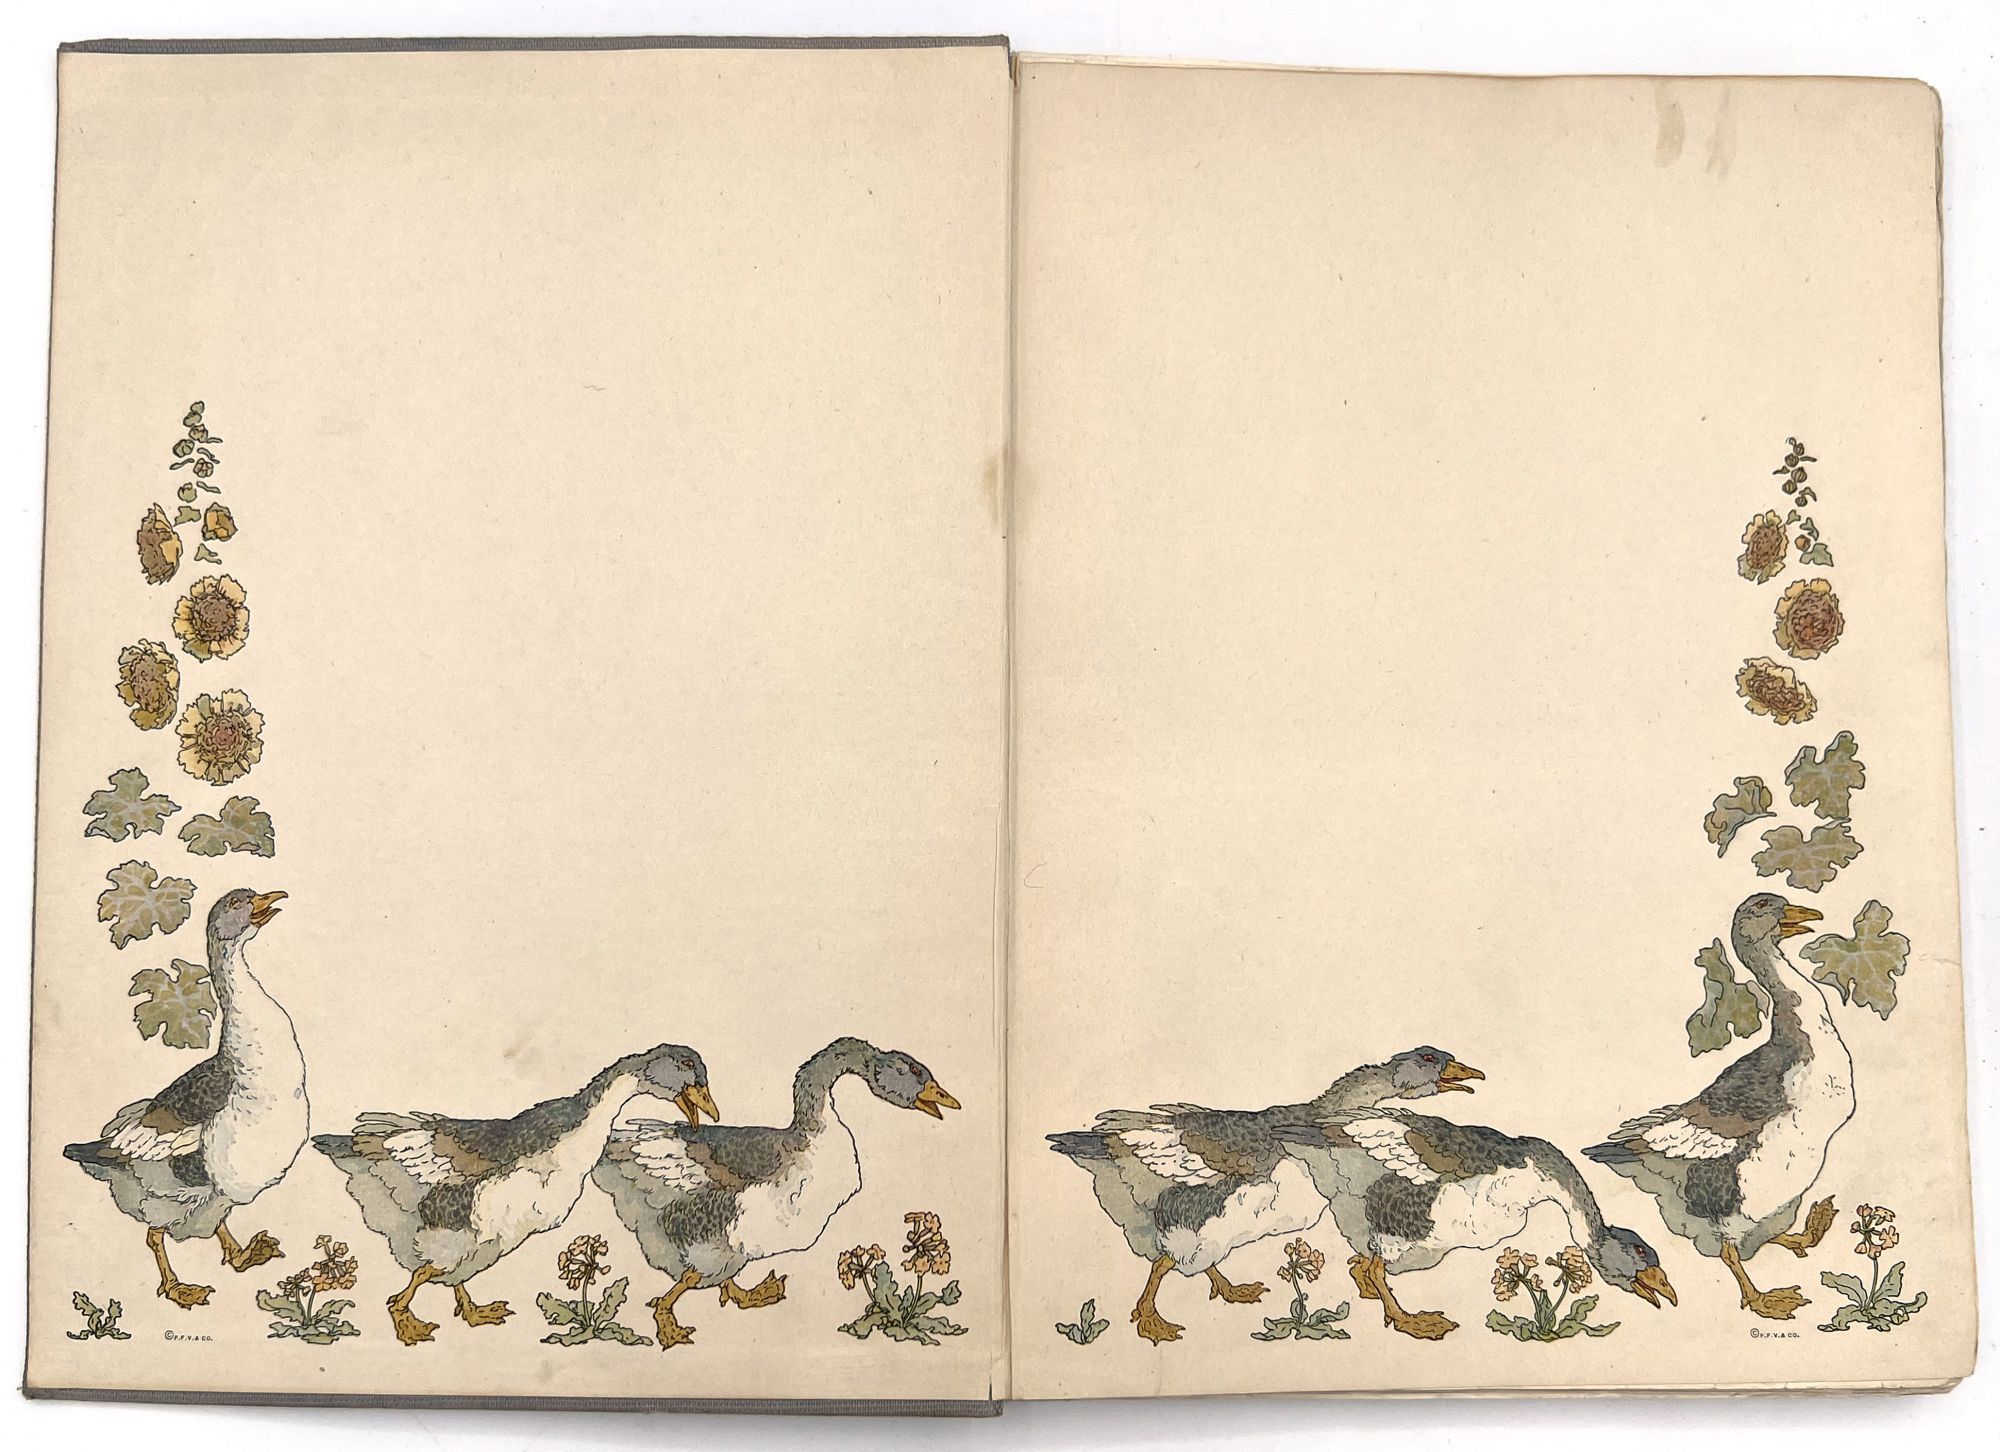 ©P.F.V.& CO.
©P.F.V.& CO.